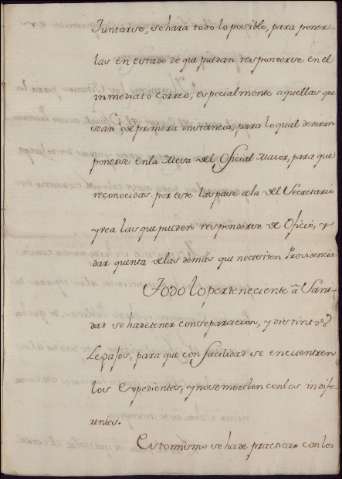 Juntarse, se hara todo lo posible, para poner
las en estado de que puedan responderse en el
inmediato correo, especialmente aquellas que
sean de primera instancia, para lo qual deveran
ponerse en la Mesa del Oficial Maior, para que
reconocidas por este las pase a la del Secretario
y vea las que pueden responderse de Oficio, y
dar quenta de las demas que necesiten Providencia
Todo lo perteneciente a
dad se ha de tener con separacion, y distintos
Legajos, para que con facilidad se encuentren
los Expedientes, y no se mezclen con los indife
rentes.
Esto mismo se ha de practicar con los